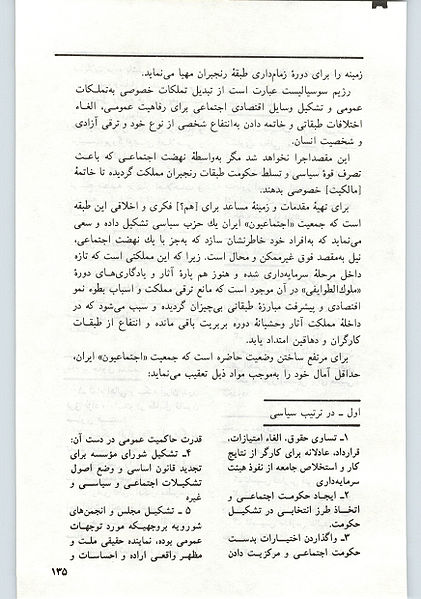 زمینه را برای دورهٔ زمام‌داری طبقهٔ رنجبران مهیا می‌نماید.
رژیم سوسیالیست عبارت است از تبدیل تملکات خصوصی به‌تملکات
عمومی و تشکیل وسایل اقتصادی اجتماعی برای رفاهیت عمومی، الغاء
اختلافات طبقاتی و خاتمه دادن به‌انتفاع شخصی از نوع خود و ترقی آزادی
و شخصیت انسان.
این مقصداجرا نخواهد شد مگر به‌واسطهٔ نهضت اجتماعی که باعث
تصرف قوهٔ سیاسی و تسلط حکومت طبقات رنجبران مملکت گردیده تا خاتمهٔ
[مالکیت] خصوصی بدهند.
برای تهیهٔ مقدمات و زمینهٔ مساعد برای [هم؟] فکری و اخلاقی این طبقه
است که جمعیت «اجتماعیون» ایران یك حزب سیاسی تشکیل داده و سعی
می‌نماید که به‌افراد خود خاطرنشان سازد که به‌جز با یك نهضت اجتماعی،
نیل به‌مقصد فوق غیرممکن و محال است. زیرا که این مملکتی است که تازه
داخل مرحلهٔ سرمایه‌داری شده و هنوز هم پارهٔ آثار و یادگاری‌های دورهٔ
«ملوك‌الطوایفی» در آن موجود است که مانع ترقی مملکت و اسباب بطوء نمو
اقتصادی و پیشرفت مبارزهٔ طبقاتی بی‌چیزان گردیده و سبب می‌شود که در
داخلهٔ مملکت آثار وحشیانهٔ دوره بربریت باقی مانده و انتفاع از طبقات
کارگران و دهاقین امتداد یابد.
برای مرتفع ساختن وضعیت حاضره است که جمعیت «اجتماعیون» ایران،
حداقل آمال خود را به‌موجب مواد ذیل تعقیب می‌نماید:
اول ـ در ترتیب سیاسی
۱ـ تساوی حقوق، الغاء امتیازات،
قرارداد عادلانه برای کارگر از نتایج
کار و استخلاص جامعه از نفوذ هیئت
سرمایه‌داری
۲ـ ایجاد حکومت اجتماعی و
اتخاذ طرز انتخابی در تشکیل
حکومت.
۳ـ واگذاردن اختیارات بدست
حکومت اجتماعی و مرکزیت دادن
قدرت حاکمیت عمومی در دست آن؛
۴ـ تشکیل شورای مؤسسه برای
تجدید قانون اساسی و وضع اصول
تشکیلات اجتماعی و سیاسی و
غیره
۵ ـ تشکیل مجلس و انجمن‌های
شورویه بروجهیکه مورد توجهات
عمومی بوده، نماینده حقیقی ملت و
مظهر واقعی اراده و احساسات و
۱۳۵